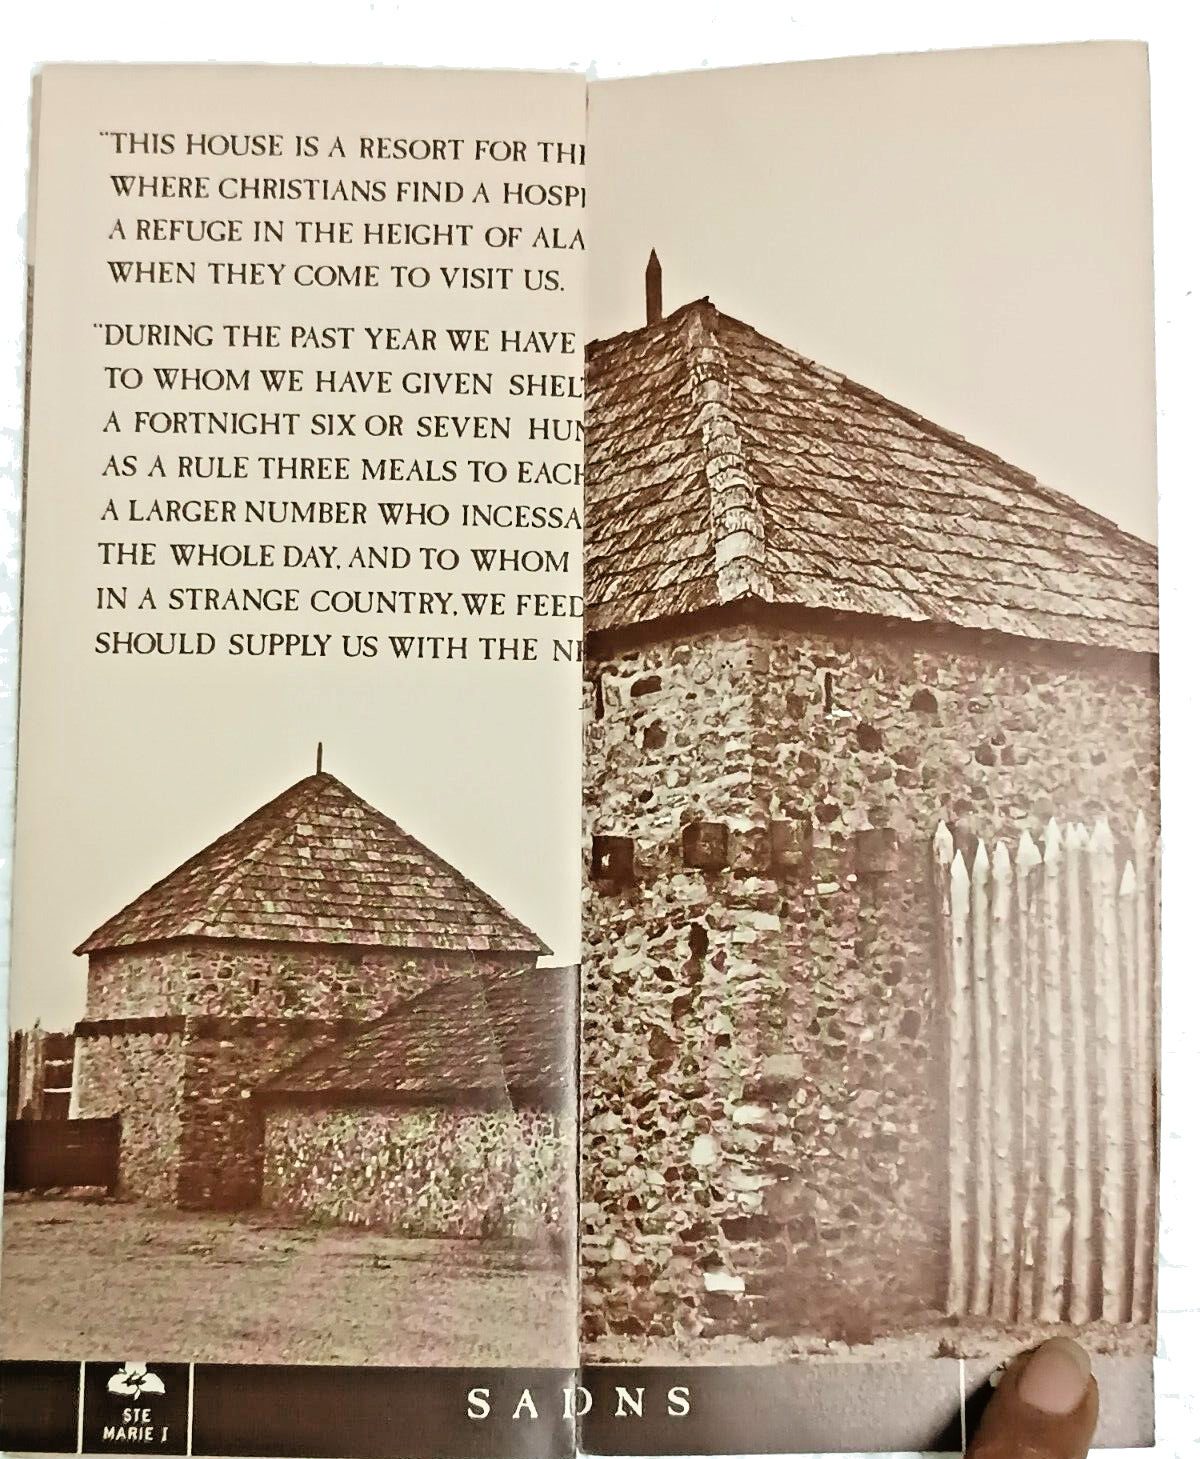 "THIS HOUSE IS A RESORT FOR
WHERE CHRISTIANS FIND A
A REFUGE IN THE HEIGHT OF
WHEN THEY COME TO VISIT US.
"DURING THE PAST YEAR WE HAVE
TO WHOM WE HAVE GIVEN
A FORTNIGHT SIX OR SEVEN
AS A RULE THREE MEALS TO
A LARGER NUMBER WHO
THE WHOLE DAY, AND TO WHOM
IN A STRANGE COUNTRY, WE FEED
SHOULD SUPPLY US WITH THE
STE
MARIE I
SA
NS